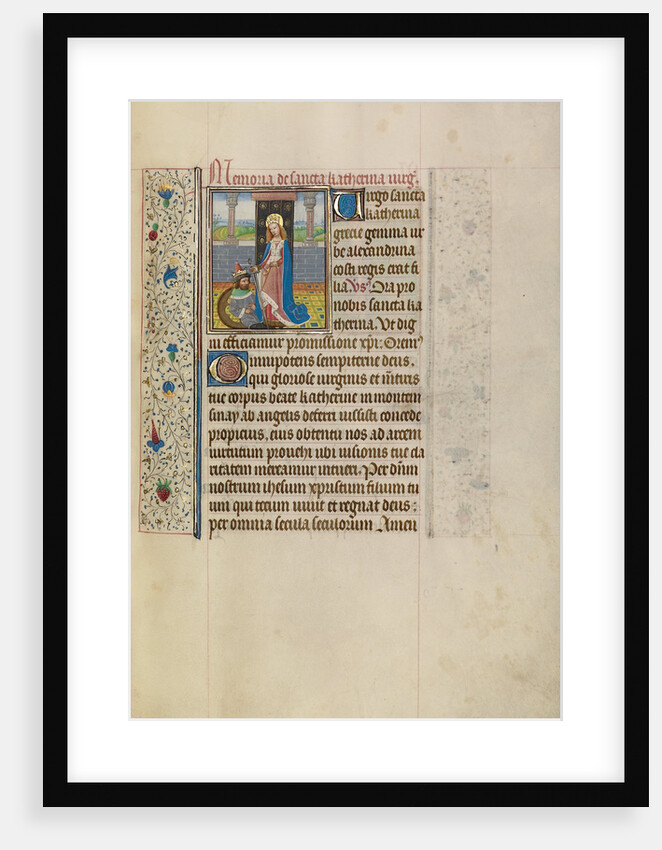 Memoria de sancta katherina virgĩ.
Virgo sancta
katherina
grecie gemma ur
be alexandrina
costi regis erat fi
lia Vs̃. Ora pro
nobis sancta ka
therina. Vt dig
ni efficiamur promissione xpi: Orem9
Omnipotens sempiterne deus,
qui gloriose virginis et m̃tiris
tue corpus beate katherine in montem
sinay ab angelis deferri iussisti concede
propicius, eius obtentu nos ad arcem
virtutum provehi ubi visionis tue cla
ritatem mereamur intueri. Per dñm
nostrum ihesum xpristum filium tu
um qui tecum vivit et regnat deus:
per omnia secula seculorum Amen